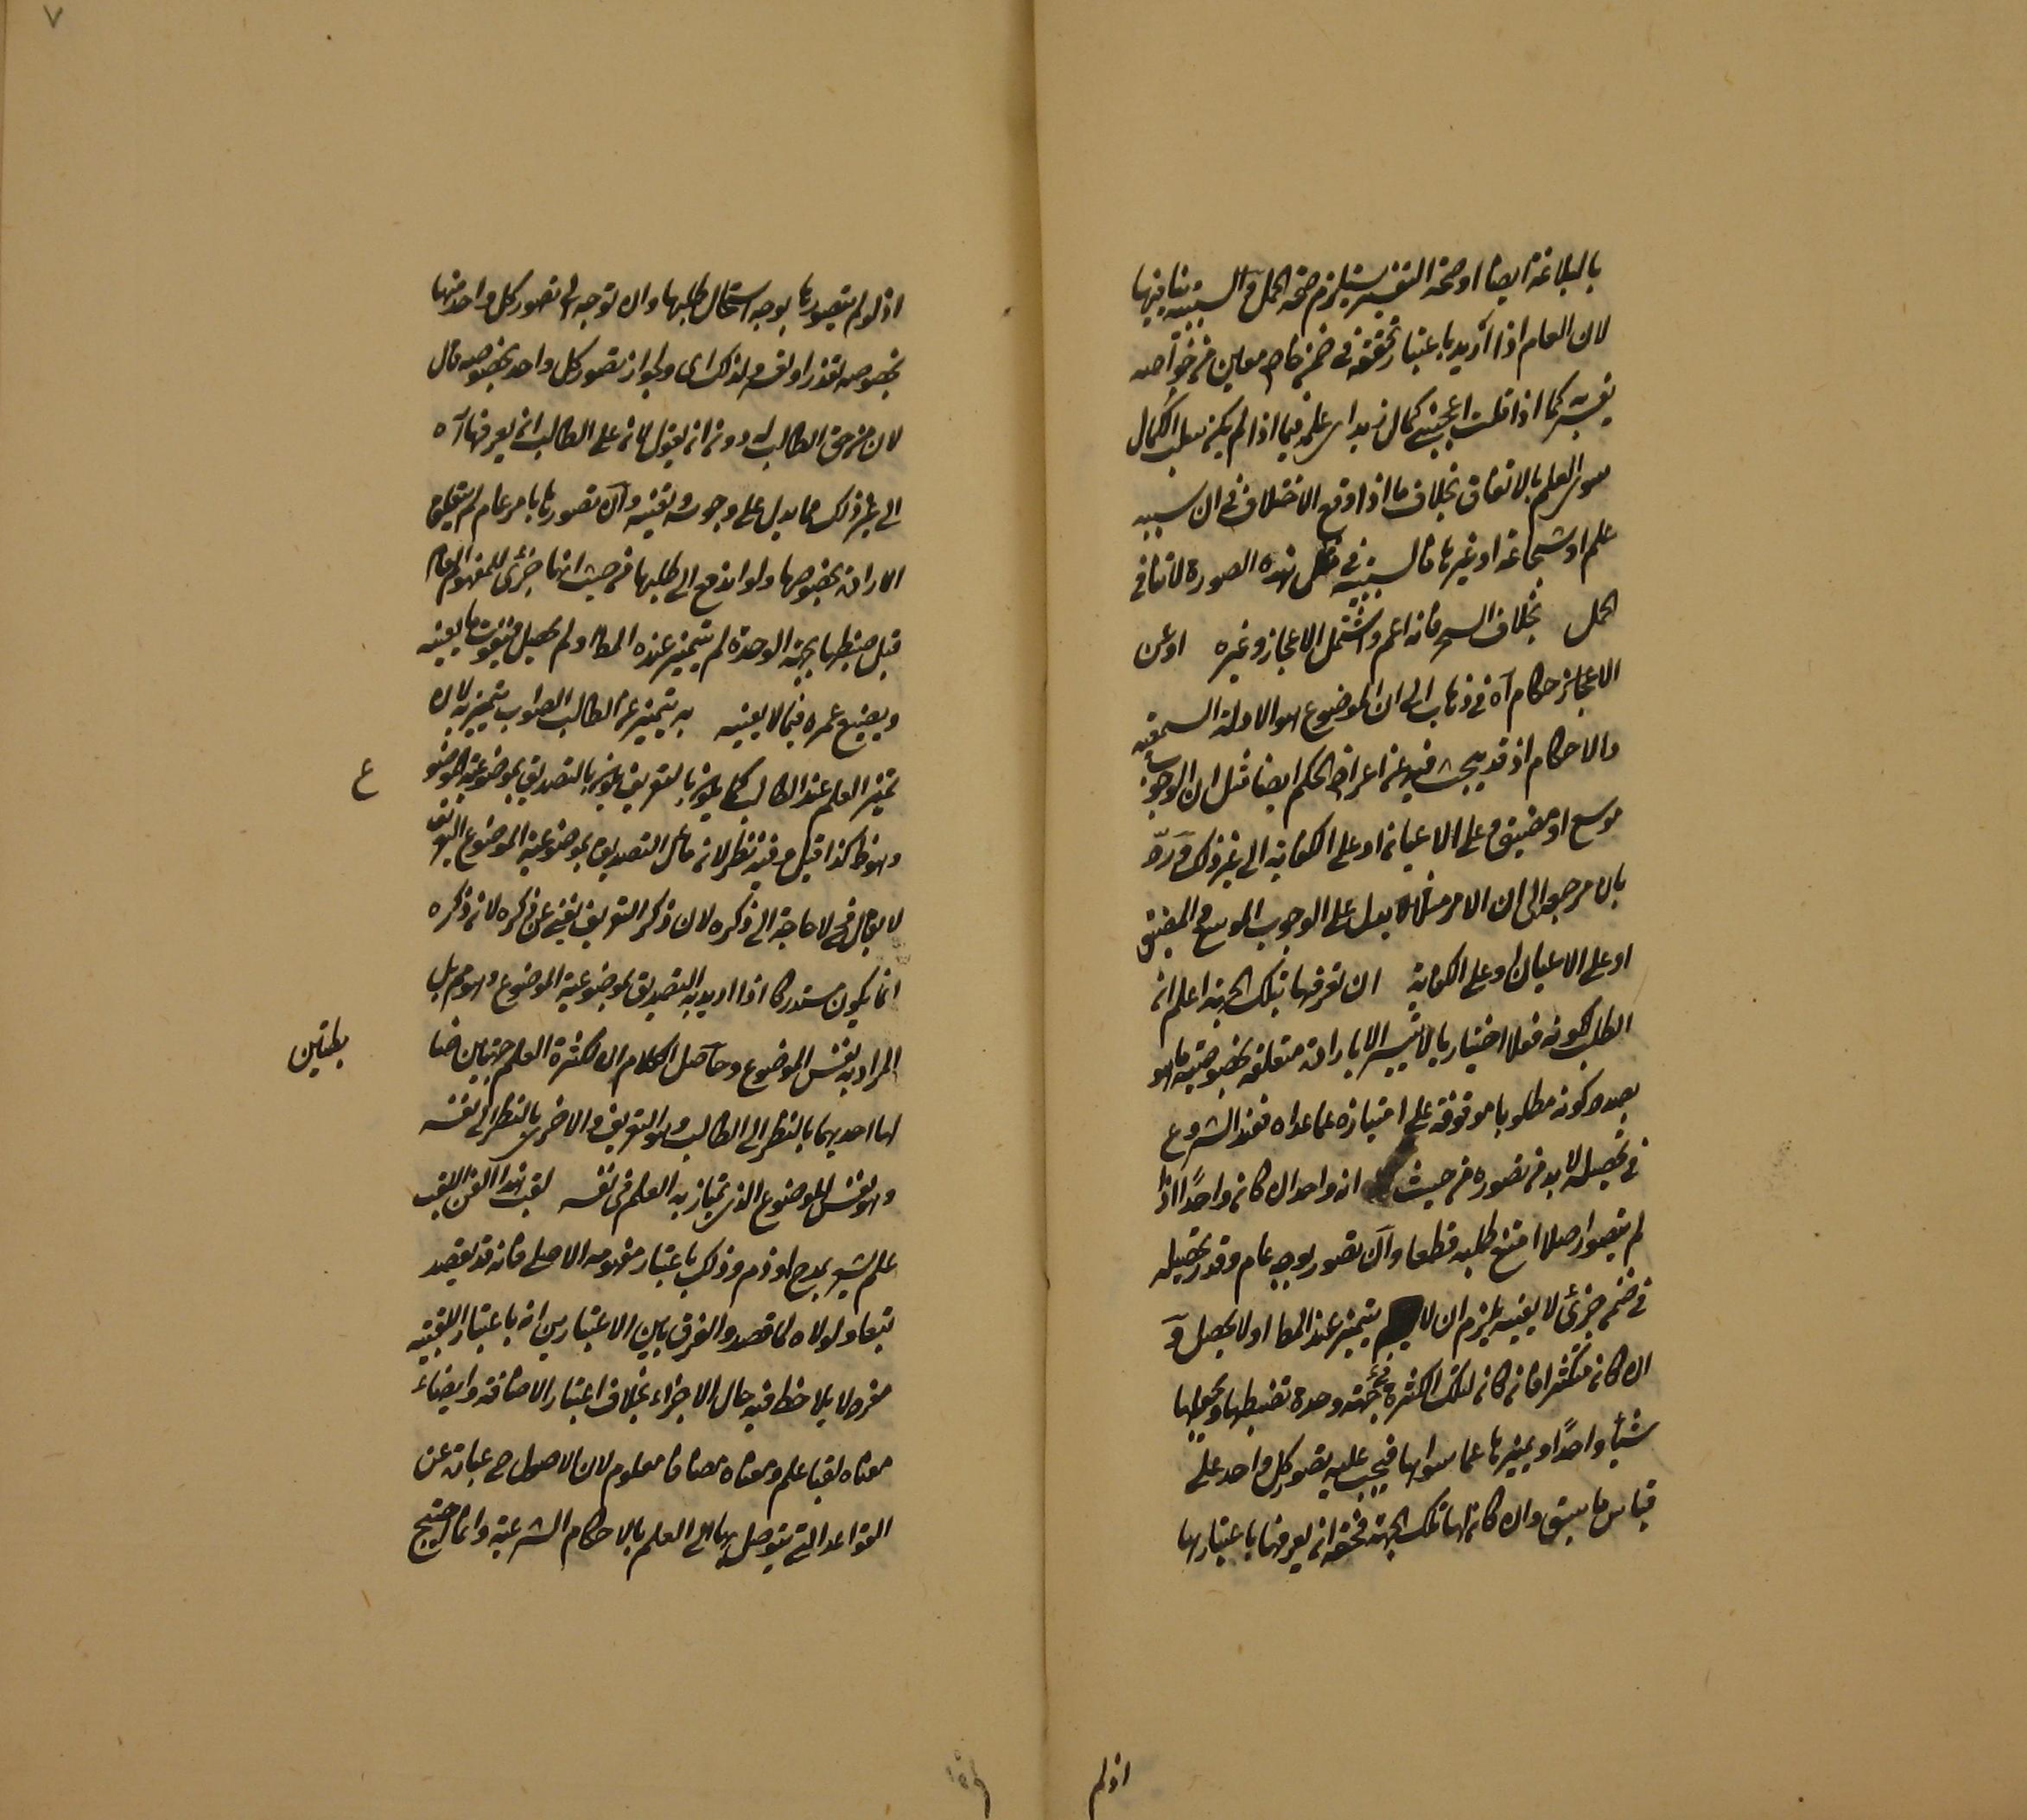 بالبلاغة ايضا او صحة التفسير يستلزم صحة الحمل والسببية تنافيها
لان العام اذا اريد باعتبار تحققه في ضمن خاص معين من خواصه
يفسر به كما اذا قلت اعجبني كمال زيد اى علمه فيما اذا لم يكن سبب الكمال
سوى العلم بالاتفاق بخلاف ما اذا وقع الاختلاف في ان سببه
علم او شجاعة او غيرها فالسببية في مثل هذه الصورة لا تنافي
الحمل بخلاف السر فانه اعم واشتمل الاعجاز وغيره او عن
الاعجاز حكام آه في ذهاب الى ان الموضوع هو الادلة السمعية
والاحكام اذ قد يبحث فيه عن اعراض الحكم ايضا مثل ان الوجوب
موسع او مضيق وعلى الاعيان او على الكفاية الى غير ذلك ورد
بان مرجعه الى ان الامر مثلا يدل على الوجوب الموسع والمضيق
او على الاعيان او على الكفاية ان تعرفها بتلك الجهة اعلم ان
الطلب لكونه فعلا اختياريا لا يتيسر الا بارادة متعلقة بخصوصية ما هو
بصدد كونه مطلوبا موقوفة على امتيازه عما عداه فعند الشروع
في تحصيله لا بد من تصوره من حيث انه واحد ان كان واحدًا اذا
لم يتصور اصلا امتنع طلبه قطعا وان تصور بوجه عام وقد تحصيله
في ضمن جزئى لا يعينه يلزم ان لا يتميز عنده المط او لا يحصل و
ان كان متكثرا فان كان لتلك الكثرة جهة وحدة تضبطها وتجعلها
شيأ واحدًا ويميزها عما سواها فيجب عليه تصور كل واحد على
قياس ما سبق وان كان لها تلك الجهة فحقه ان يعرفها باعتبارها
اذ لم
٧
اذ لو لم يتصورها بوجه استحال طلبها وان توجه الى تصور كل واحد منها
بخصوصه تعذر او تعسر ولذلك اى ولجواز تصور كل واحد بخصوصه قال
لان من حق الطالب له دون ان يقول لانه على الطالب ان يعرفها آه
الى غير ذلك مما يدل على وجوبه يقينه وان تصورها بامر عام لم يتعلق
الارادة بخصوصها ولو اندفع الى طلبها من حيث انها جزئى للمفهوم العام
قبل ضبطها بجهة الوحدة لم يتميز عنده المط او لم يحصل فيفوت ما يعنيه
ويضيع عمره فيما لا يعنيه به يتميز عن الطالب الصواب يتميز به لان
تميز العلم عند الطالب كما يكون بالتعريف يكون بالتصديق بموضوعية الموضوع
وهو ظ كذا قيل وفيه نظر لان مآل التصديق بموضوعية الموضوع التعريف
لا يقال فح لا حاجة الى ذكره لان ذكر التعريف يغني عن ذكره لان ذكره
انما يكون مستدركا اذا اريد به التصديق بموضوعية الموضوع وهو م بل
المراد به نفس الموضوع وحاصل الكلام ان لكثرة العلم جهتين ضا
بطتين
اما احديهما بالنظر الى الطالب وهو التعريف والاخرى بالنظر الى نفسه
وهو نفس الموضوع الذى يمتاز به العلم في نفسه لقب هذا الفن اللقب
علم يشعر بمدح او ذم وذلك باعتبار مفهومه الاصلى فانه قد يقصد
تبعا ولولاه لما قصد والفرق بين الاعتبارين انه باعتبار اللقبية
مفرد لا يلاحظ فيه حال الاجزاء بخلاف اعتبار الاضافة وايضا
معناه لقبا علم ومعناه مضافا معلوم لان الاصول ح عبارة عن
القواعد التى يتوصل بها الى العلم بالاحكام الشرعية وانما احتيج